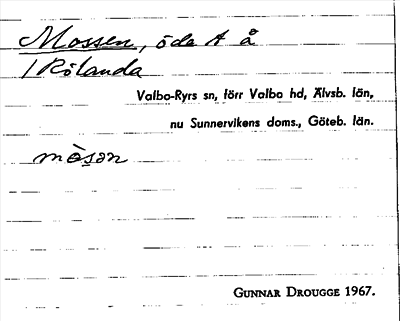 Mossen, öde t å
/ Rölanda
Valbo-Ryrs sn, förr Valbo hd, Älvsb. län,
nu Sunnervikens doms., Göteb. län.
mòsən
GUNNAR DROUGGE 1967.